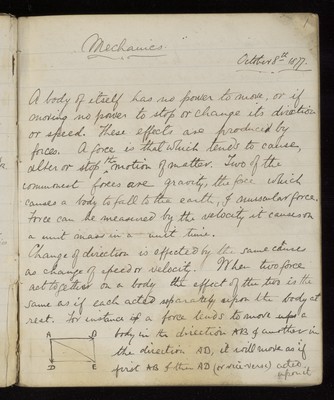 1
Mechanics.
October 8th 1877.
A body of itself has no power to move, or if
moving no power to stop or change its direction
or speed. These effects are produced by
forces. A force is that which tends to cause,
alter or stop the motion of matter. Two of the
commonest forces are gravity, the force which
causes a body to fall to the earth, & muscular force.
Force can be measured by the velocity it causes on
a unit mass in a unit time.
Change of direction is effected by the same cause
as change of speed or velocity. When two force
act together on a body the effect of the two is the
same as if each acted separately upon the body at
rest. For instance if a force tends to move a
body in the direction AB & another in
the direction AD, it will move as if
first AB & then AD (or vice versa) acted
upon it
A B
D E